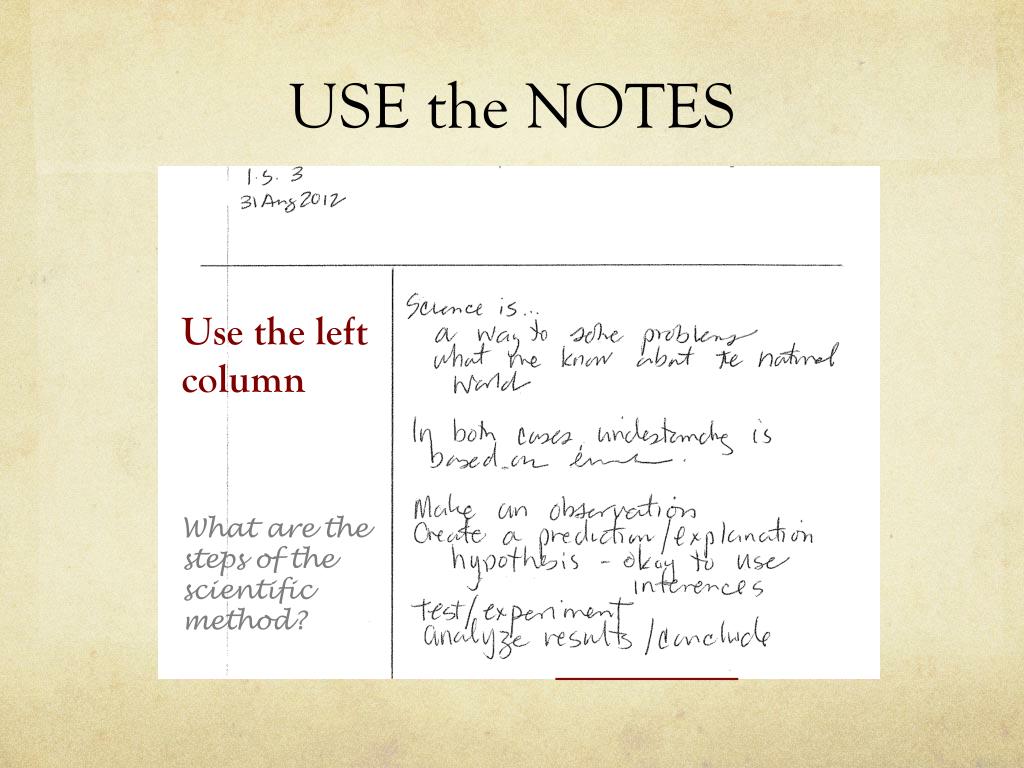 USE the NOTES
I.S. 3
31 Aug 2012
Use the left
column
Science is...
a way to solve problems
what we know about the natural
world
In both cases, understanding is
based on
What are the
steps of the
scientific
method?
Make an observation
Create a prediction/explanation
hypothesis - okay to use
inferences
test/experiment
analyze results/conclude